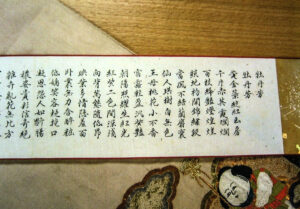 牡丹芳
牡丹芳
黃金蘂綻紅玉房
千片赤英霞爛爛
百枝絳艷燈煌煌
照地初開錦繡段
當風不結蘭麝囊
仙人琪樹白無色
王母桃花小不香
宿露輕盈泛紫艷
朝陽照耀生紅光
紅紫二色間深淺
向背萬態隨低昂
映葉多情隱羞面
臥叢無力含醉粧
低嬌笑容疑掩口
凝思怨人如斷腸
穠姿貴彩信奇絕
雜卉亂花無比方